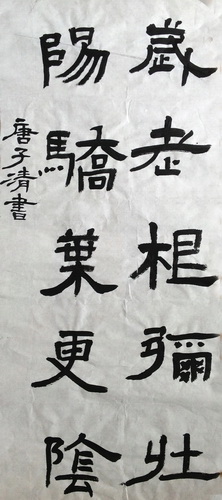 歲老根彌壯
陽驕葉更陰
唐子清書